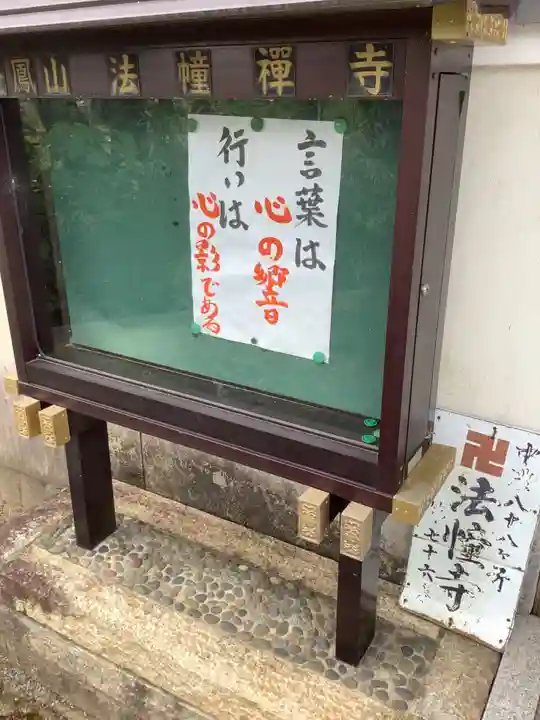 鳳山法幢禪寺
言葉は
心の響
行いは
心の影である
八十八ヶ所
法幢寺
七十六